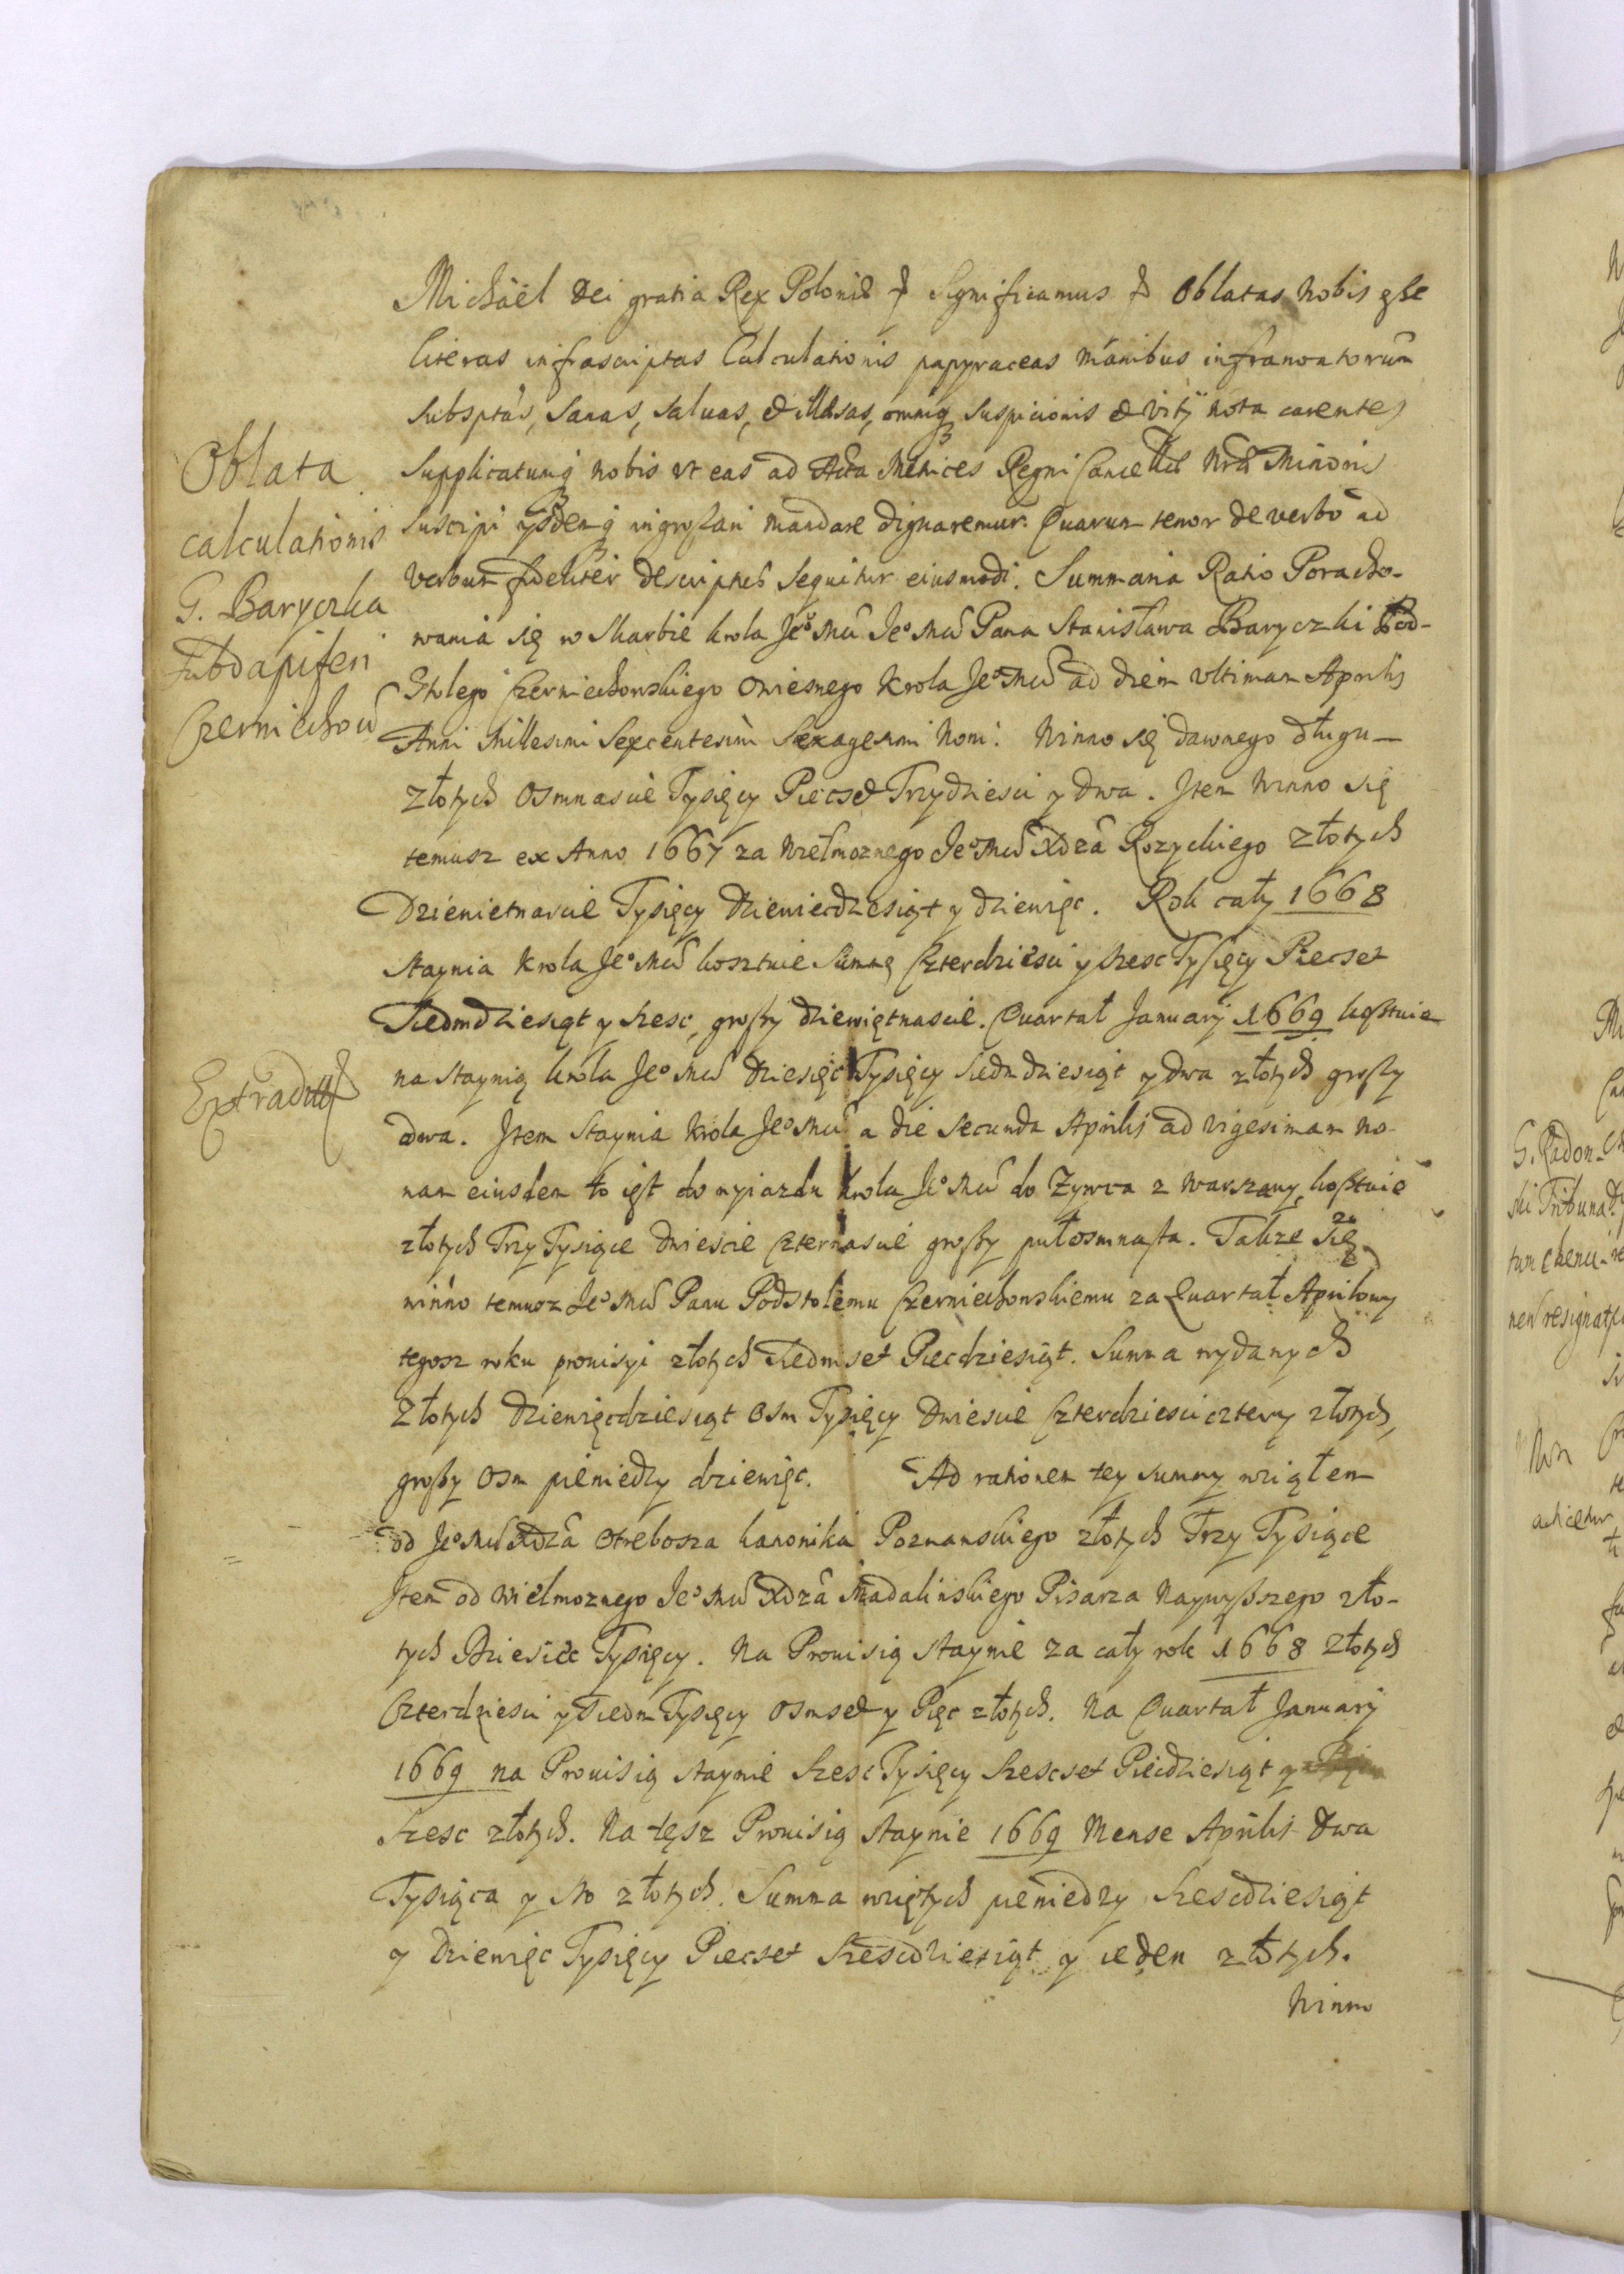 Michäel Dei gratia Rex Poloniæ & Significamus & Oblatas Nobis esse
literas infrascriptas Calculationis papyraceas Manibus infranotatorum
Subsptas, Sanas, Saluas, & illæsas, omniq3 Suspicionis & Vitÿ nota carentes
Supplicatumq3 nobis vt eas ad Acta Metrices Regni Cancellæ Nræ Minoris
Suscipi ijsdemq3 ingrossari Mandare dignaremur. Quarum tenor de verbo ad
verbum fideliter descriptus sequitur eiusmodi. Summaria Ratio Poracho-
wania się w Skarbie krola Jeo Mci Jeo Mci Pana Stanisława Baryczki Pod-
Stolego Czerniechowskiego Owiesnego Krola Jeo Mci ad diem vltimam Aprilis
Anni Millesimi Sexcentesimi Sexagesimi Noni. Winno się dawnego długu
złotych Osmnascie Tysięcy Piecset Trzydziesci y dwa. Item Winno się
temusz ex Anno 1667 za Wielmoznego Jeo Mci Xdza Rozyckiego złotych
Dziewietnascie Tysięcy Dziewiecdziesiąt y dziewięc. Rok cały 1668
Staynia Krola Jeo Mci kosztuie Summę Czterdziesci y szesc Tysięcy Piecset
Siedmdziesiąt y szesc, grossy dziewiętnascie. Quartał Januarij 1669 kosztuie
na Staynią krola Jeo Mci Dziesięc Tysięcy siedmdziesiąt y dwa złotych grossy
dwa. Item Staynia Krola Jeo Mci a die Secunda Aprilis ad vigesimam no-
nam eiusdem to iest do wyiazdu Krola Jeo Mci do Zywca z Warszawy, kosztuie
złotych Trzy Tysiące Dwiescie Czternascie grossy pułosmnasta. Takze się
winno temusz Jeo Mci Panu Podstolemu Czerniechowskiemu za Quartał Aprilowy
tegosz roku prouisyi złotych Siedmset Piecdziesiąt. Summa wydanych
Złotych Dziewięcdziesiąt Osm Tysięcy Dwiescie Czterdziesci cztery złotych,
grossy Osm pieniedzy dziewięc. Ad rationem tey summy wziąłem
od Jeo Mci Xdza Otrebosza kanonika Poznanskiego złotych Trzy Tysiące
Item od Wielmoznego Jeo Mci Xdza Madalinskiego Pisarza Naywysszego zło-
tych Dziesiec Tysięcy. Na Prouisią Staynie za cały rok 1668 złotych
Czterdziesci y Siedm Tysięcy Osmset y Pięc złotych. Na Quartał Januarij
1669 na Prouisią Staynie Szesc Tysięcy Szescset Piecdziesiąt y
Szesc złotych. Na tęsz Prouisią Staynie 1669 Mense Aprilis Dwa
Tysiąca y sto złotych. Summa wziętych pieniedzy Szescdziesiąt
y Dziewięc Tysięcy Piecset Szescdziesiąt y ieden złotych.
Winno
Oblata
calculationis
G. Baryczka
Subdapiferi
Czerniechow
Extradittæ
G. Radon-
ski Tribuna